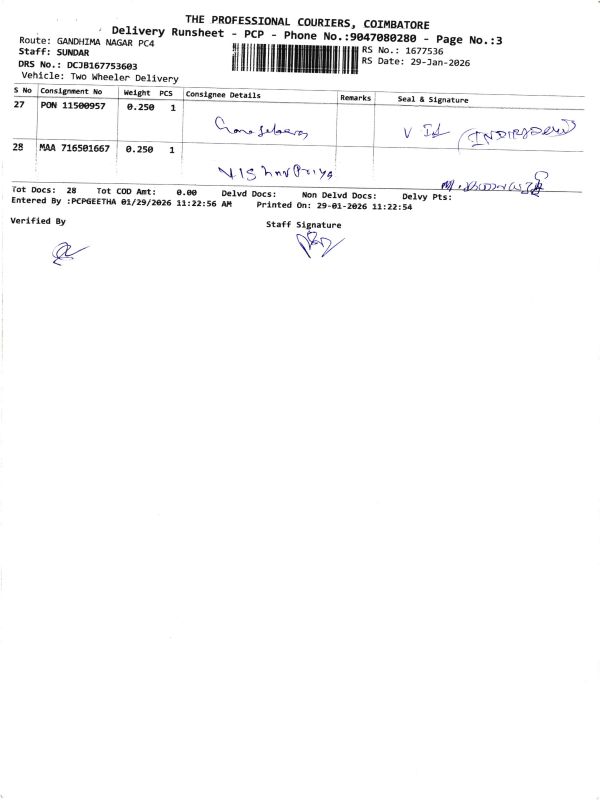 THE PROFESSIONAL COURIERS, COIMBATORE
Delivery Runsheet - PCP - Phone No.:9047080280 - Page No.:3
Route: GANDHIMA NAGAR PC4
RS No.: 1677536
Staff: SUNDAR
RS Date: 29-Jan-2026
DRS No.: DCJB167753603
Vehicle: Two Wheeler Delivery
S No Consignment No Weight PCS Consignee Details Remarks Seal & Signature
27 PON 11500957 0.250 1
28 MAA 716501667 0.250 1 Vishnu Priya
Tot Docs: 28 Tot COD Amt: 0.00 Delvd Docs: Non Delvd Docs: Delvy Pts:
Entered By :PCPGEETHA 01/29/2026 11:22:56 AM Printed On: 29-01-2026 11:22:54
Verified By
Staff Signature